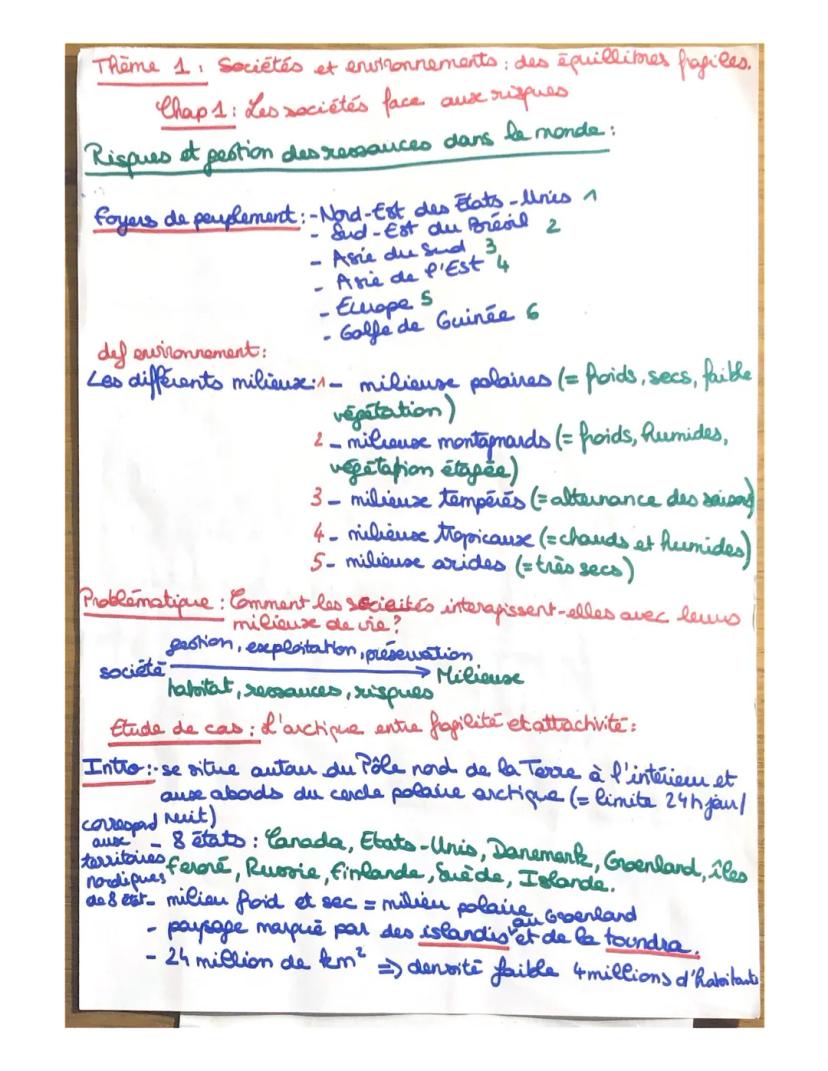 Thème 1 : Sociétés et environnements : des équilibres fragiles.
Chap 1 : Les sociétés face aux risques
Risques et gestion des ressources dans le monde :
foyers de peuplement : - Nord-Est des États-Unis 1
- Sud-Est du Brésil 2
- Asie du Sud 3
- Asie de l'Est 4
- Europe 5
- Golfe de Guinée 6
def environnement :
Les différents milieux : 1 - milieux polaires (= froids, secs, faible
végétation)
2 - milieux montagnards (= froids, humides,
végétation étagée)
3 - milieux tempérés (= alternance des saisons)
4 - milieux tropicaux (= chauds et humides)
5 - milieux arides (= très secs)
Problématique : Comment les sociétés interagissent-elles avec leurs
milieux de vie ?
gestion, exploitation, préservation
société → Milieux
habitat, ressources, risques
Etude de cas : L'arctique entre fragilité et attactivité :
Intro : - se situe autour du Pôle nord de la Terre à l'intérieur et
aux abords du cercle polaire arctique (= limite 24h jour/
nuit)
correspond aux territoires nordiques de 8 état
- 8 états : Canada, Etats-Unis, Danemark, Groenland, îles
feroré, Russie, finlande, Suède, Islande.
- milieu froid et sec = milieu polaire
- paysage marqué par des islandis au Groenland et de la toundra.
- 24 million de km² => densité faible 4 millions d'habitants